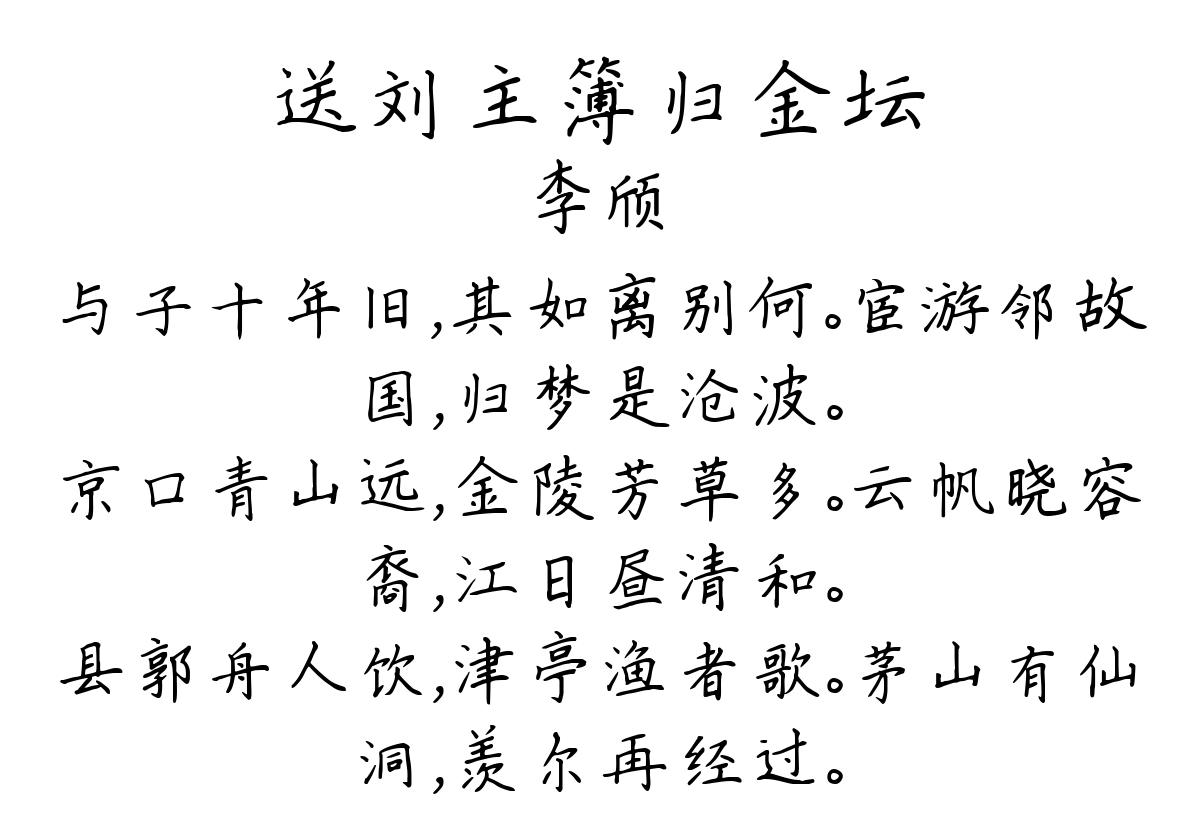 送刘主簿归金坛
李颀
与子十年旧,其如离别何。宦游邻故
国,归梦是沧波。
京口青山远,金陵芳草多。云帆晓容
裔,江日昼清和。
县郭舟人饮,津亭渔者歌。茅山有仙
洞,羡尔再经过。